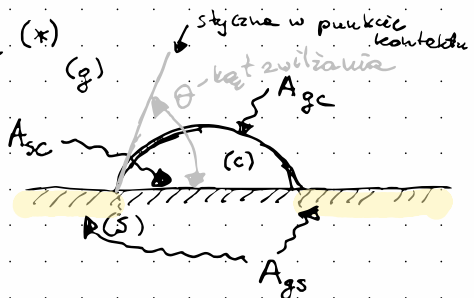 (*)
styczna w punkcie
kontaktu
(g)
θ-kąt zwilżania
Agc
Asc
(c)
(S)
Ags